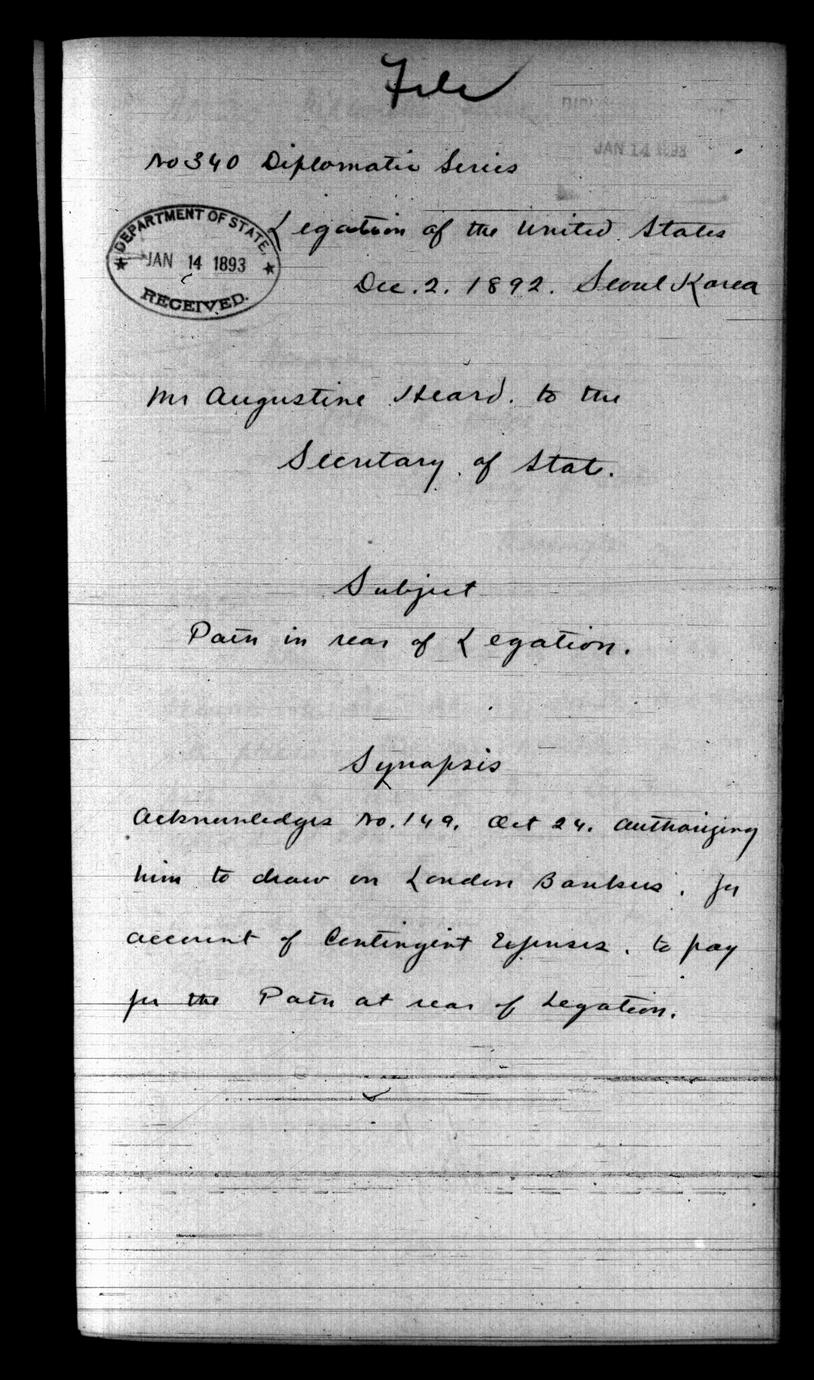 File
No 340 Diplomatic Series
JAN 14 1893
Legation of the United States
DEPARTMENT OF STATE.
JAN 14 1893
RECEIVED.
Dec. 2. 1892. Seoul Korea
Mr Augustine Heard. to the
Secretary of State.
Subject
Path in rear of Legation.
Synopsis
Acknowledges No. 149. Oct 24. authorizing
him to draw on London Bankers. for
account of Contingent Expenses. to pay
for the Path at rear of Legation.